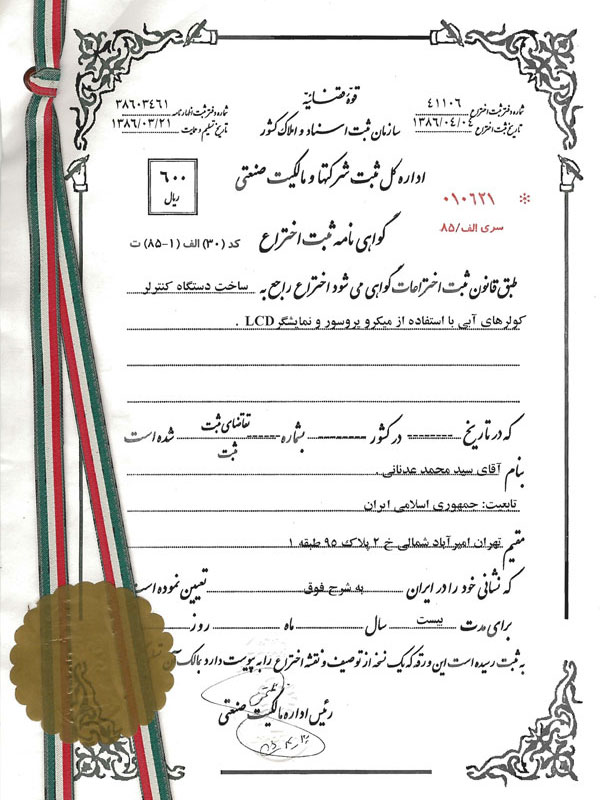 قوۀ قضائیه
سازمان ثبت اسناد و املاک کشور
شماره دفتر ثبت اختراع ۴۱۱۰۶
تاریخ ثبت اختراع ۱۳۸۶/۰۴/۰۴
شماره دفتر ثبت اظهارنامه ۳۸۶۰۳۴۶۱
تاریخ تسلیم و حمایت ۱۳۸۶/۰۳/۲۱
اداره کل ثبت شرکتها و مالکیت صنعتی
۶۰۰
ریال
۰۱۰۶۲۱ *
سری الف/۸۵
گواهی نامه ثبت اختراع
کد (۳۰) الف (۱-۸۵) ت
طبق قانون ثبت اختراعات گواهی می شود اختراع راجع به ساخت دستگاه کنترلر
کولرهای آبی با استفاده از میکرو پروسور و نمایشگر LCD .
که در تاریخ -------- در کشور -------- بشماره ------ تقاضای ثبت شده است
ثبت
بنام آقای سید محمد عدنانی .
تابعیت: جمهوری اسلامی ایران
مقیم تهران امیرآباد شمالی خ ۲ پلاک ۹۵ طبقه ۱
که نشانی خود را در ایران به شرح فوق تعیین نموده است
برای مدت بیست سال ماه روز
به ثبت رسیده است این ورقه که یک نسخه از توصیف و نقشه اختراع را به پیوست دارد بمالک آن
رئیس اداره مالکیت صنعتی